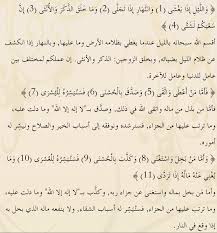 ﴿ وَاللَّيْلِ إِذَا يَغْشَى (1) وَالنَّهَارِ إِذَا تَجَلَّى (2) وَمَا خَلَقَ الذَّكَرَ وَالأُنْثَى (3) إِنَّ
سَعْيَكُمْ لَشَتَّى (4) ﴾
أقسم الله سبحانه بالليل عندما يغطي بظلامه الأرض وما عليها، وبالنهار إذا انكشف
عن ظلام الليل بضيائه، وبخلق الزوجين: الذكر والأنثى. إن عملكم لمختلف بين
عامل للدنيا وعامل للآخرة.
﴿ فَأَمَّا مَنْ أَعْطَى وَاتَّقَى (5) وَصَدَّقَ بِالْحُسْنَى (6) فَسَنُيَسِّرُهُ لِلْيُسْرَى (7) ﴾
فأما من بذل من ماله واتقى الله في ذلك، وصدَّق بـ"لا إله إلا الله" وما دلت عليه،
وما ترتب عليها من الجزاء، فسنرشده ونوفقه إلى أسباب الخير والصلاح ونيسِّر له
أموره.
﴿ وَأَمَّا مَنْ بَخِلَ وَاسْتَغْنَى (8) وَكَذَّبَ بِالْحُسْنَى (9) فَسَنُيَسِّرُهُ لِلْعُسْرَى (10) وَمَا
يُغْنِي عَنْهُ مَالُهُ إِذَا تَرَدَّى (11) ﴾
وأما من بخل بماله واستغنى عن جزاء ربه، وكذَّب بـ"لا إله إلا الله" وما دلت عليه،
وما ترتب عليها من الجزاء، فسنيسِّر له أسباب الشقاء، ولا ينفعه ماله الذي بخل به إذا
وقع في النار.